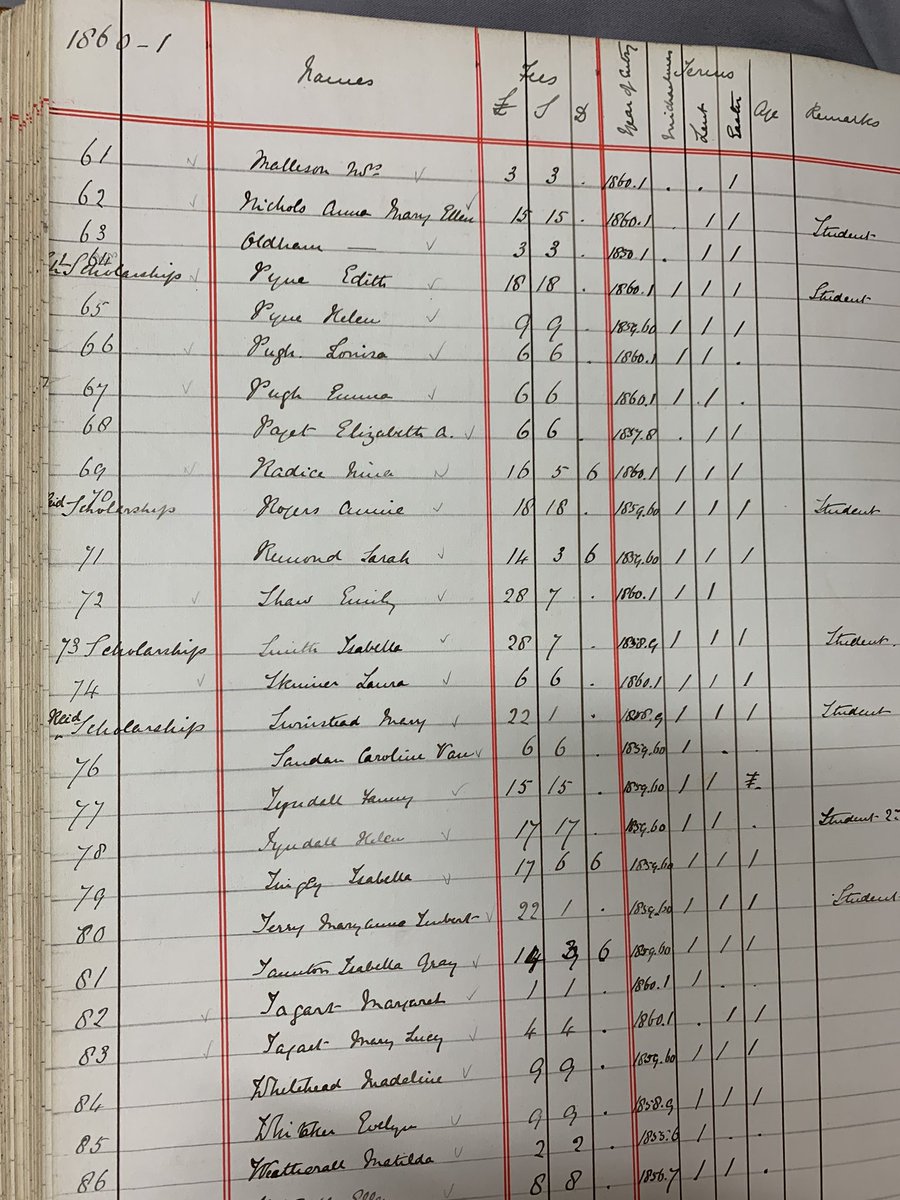 1860-1 Names Fees Year of Entry Terms Age Remarks
£ S D Michaelmas Lent Easter
61 Malleson Mrs 3 3 . 1860.1 . . 1
62 Nichols Anna Mary Ellen 15 15 . 1860.1 . 1 1 Student
63 Oldham — 3 3 . 1850.1 . 1 1
64 Scholarships Pyne Edith 18 18 . 1860.1 1 1 1 Student
65 Pyne Helen 9 9 . 1859.60 1 1 1
66 Pugh Louisa 6 6 . 1860.1 1 1 .
67 Pugh Emma 6 6 1860.1 1 1 .
68 Paget Elizabeth A. 6 6 . 1857.8 . 1 1
69 Radice Nina 16 5 6 1860.1 1 1 1
70 Reid Scholarship Rogers Annie 18 18 . 1859.60 1 1 1 Student
71 Remond Sarah 14 3 6 1859.60 1 1 1
72 Shaw Emily 28 7 . 1860.1 1 1
73 Scholarship Smith Isabella 28 7 . 1858.9 1 1 1 Student.
74 Skinner Laura 6 6 . 1860.1 1 1 1
Reid Scholarship Swinstead Mary 22 1 . 1858.9 1 1 1 Student
76 Sandau Caroline Van 6 6 . 1859.60 1 . .
77 Tyndall Fanny 15 15 . 1859.60 1 1
78 Tyndall Helen 17 17 . 1859.60 1 1 . Student
79 Tingly Isabella 17 6 6 1859.60 1 1 1
80 Terry Maryanna 22 1 . 1859.60 1 1 1 Student
81 Taunton Isabella Gray 14 3 6 1859.60 1 1 1
82 Tagart Margaret 1 1 . 1860.1 1 . .
83 Tagart Mary Lucy 4 4 . 1860.1 . 1 1
84 Whitehead Madeline 9 9 . 1859.60 1 1 1
85 Whitaker Evelyn 9 9 . 1858.9 1 1 1
86 Weatherall Matilda 2 2 . 1855.6 1 . .
8 8 . 1856.7 1 1 .